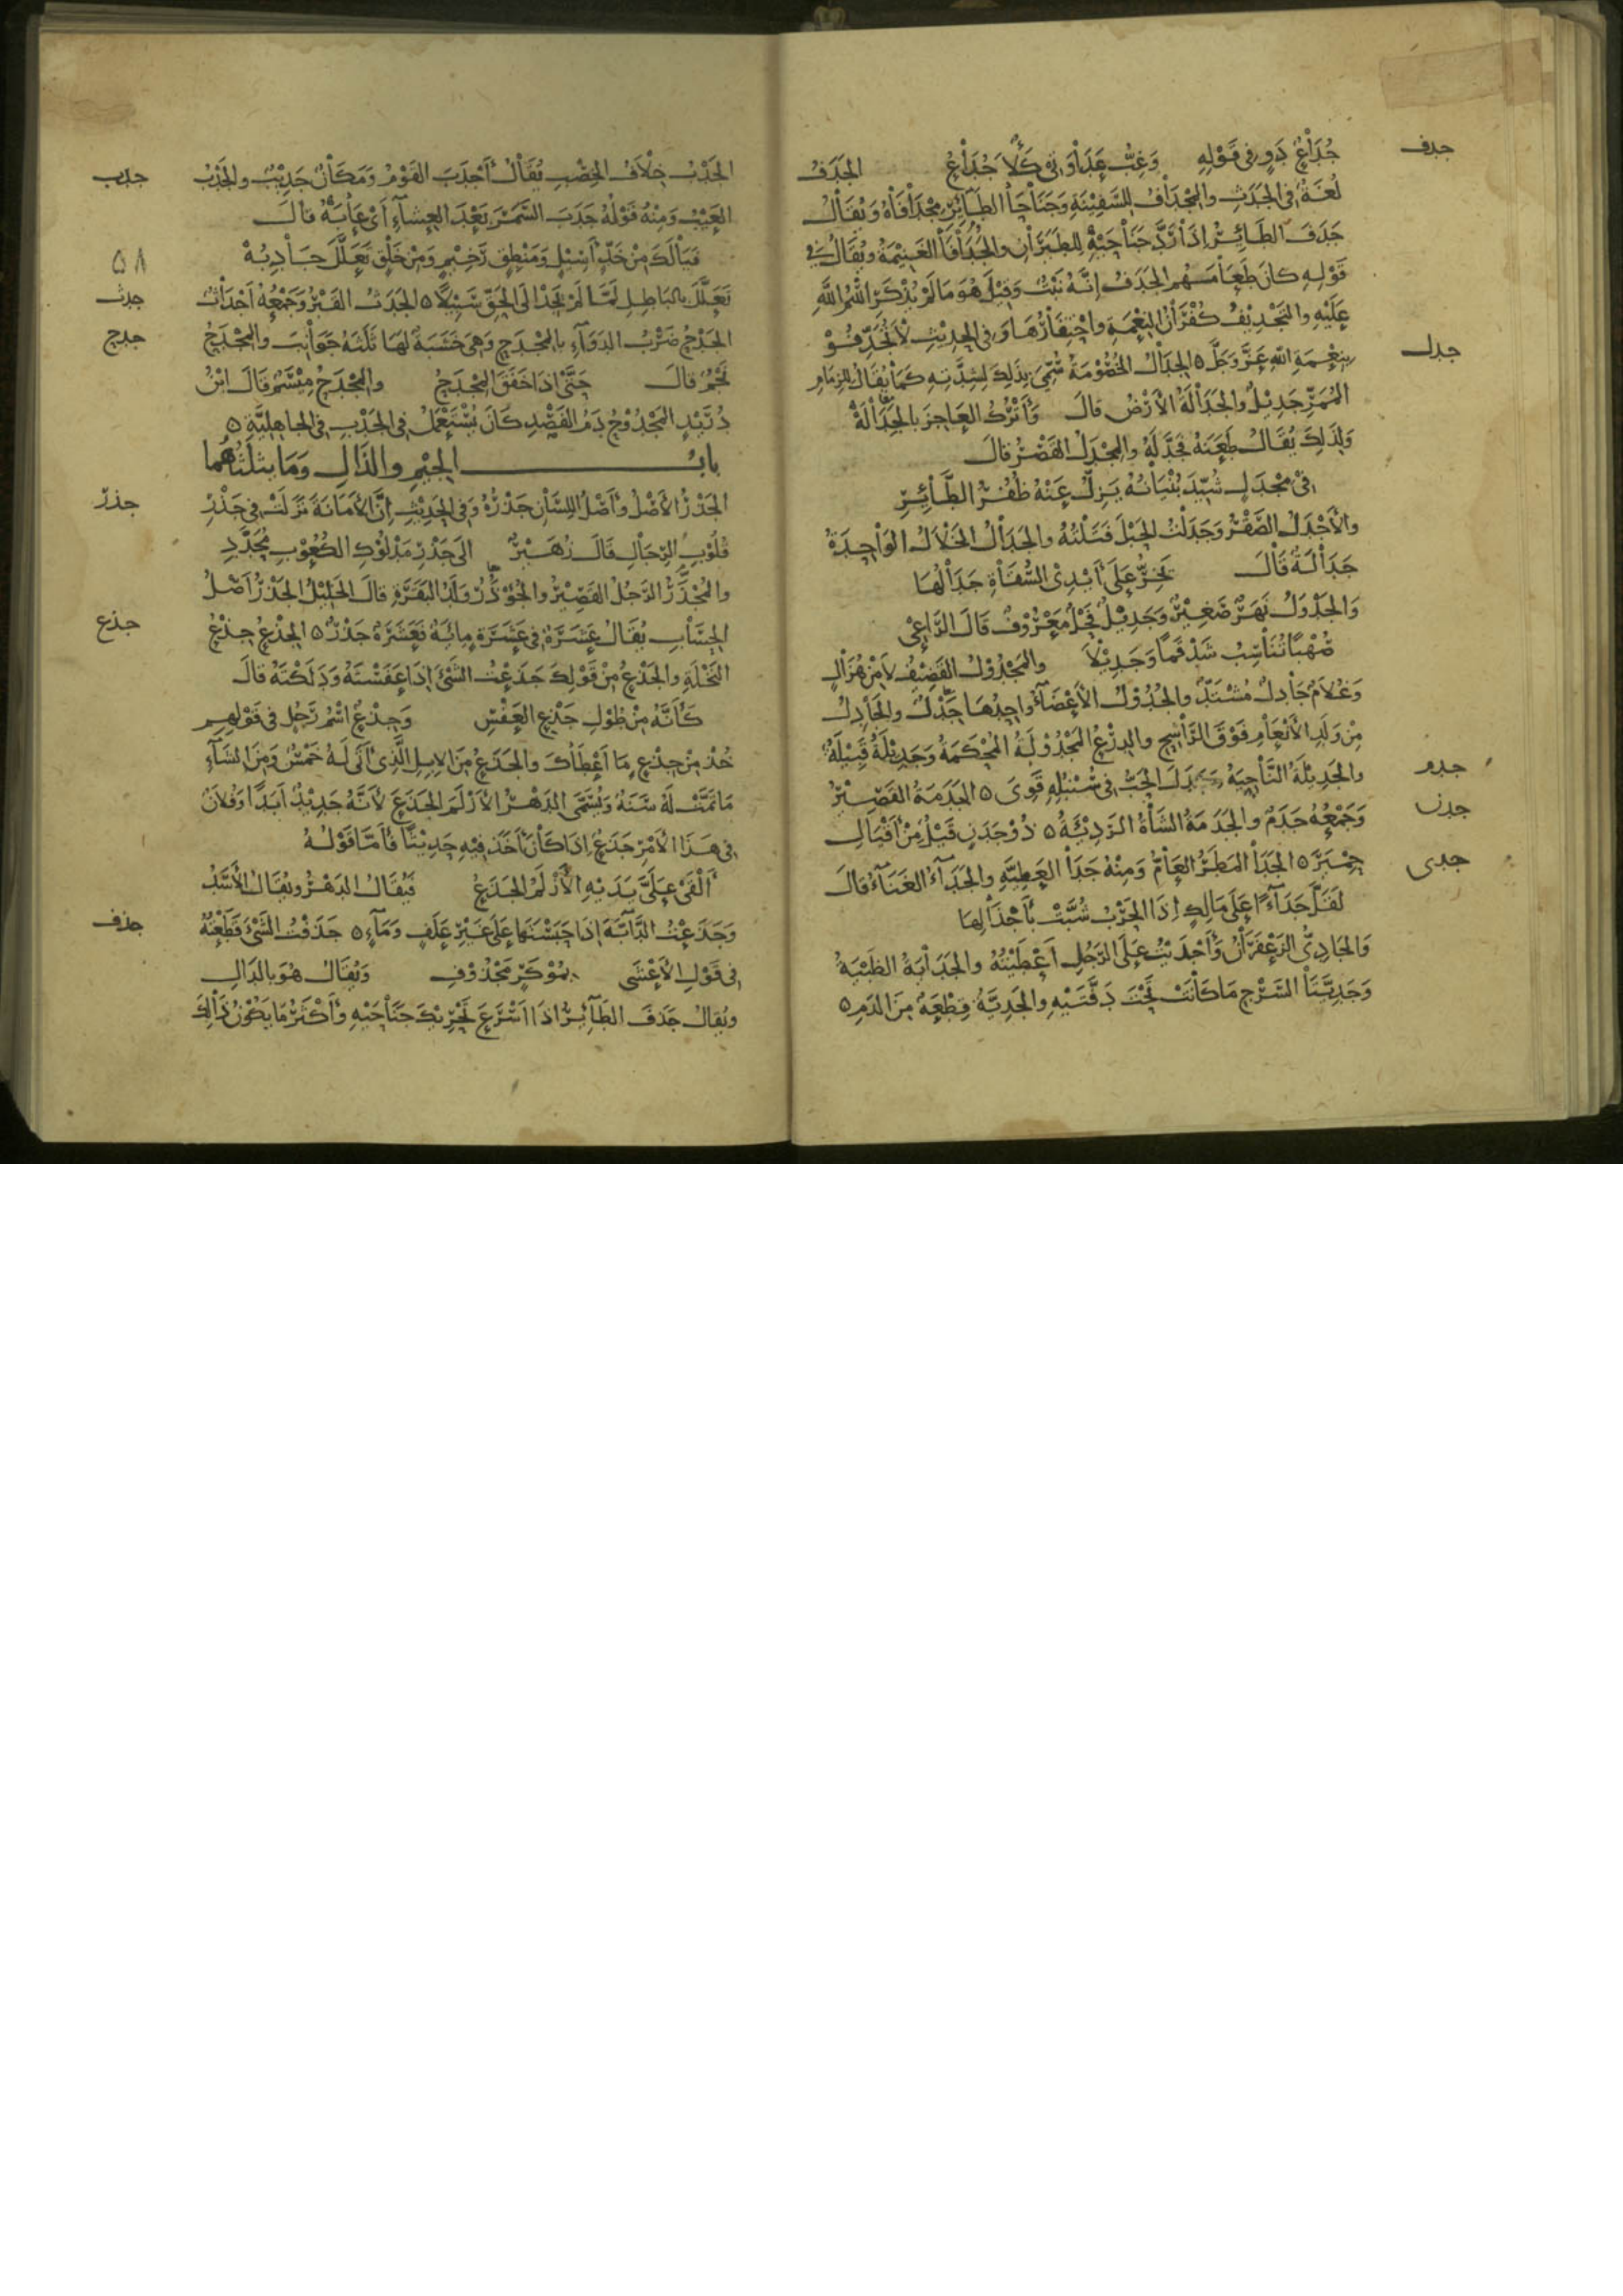 جدف
جُدَاعٌ دَوٍ فى قَوْلِهِ وَغِبُّ عَدَاوَتى كَلَأٌ جُدَاعُ الجَدَفُ
لُغَةٌ فى الجَدَثِ والمِجْدَافُ لِلسَّفِيْنَةِ وَجَنَاحَا الطَائِرِ مِجْدَافَاهُ وَيُقَالُ
جَدَفَ الطَائِرُ إذَا رَدَّ جَنَاحَيْهِ لِلطَيَرَانِ والجُدَافَا الغَنِيْمَةُ ويُقَالُ فى
قَوْلِهِ كانَ طَعَامُهُم الجَدَفُ إنَّهُ نَبْتٌ وَقِيْلَ هُوَ مَا لَمْ يُذْكَرِ اسْمُ اللهِ
عَلَيْهِ والتَجْدِيْفُ كُفْرَانُ النِعْمَةِ واحْتِقَارُهَا وَفى الحَدِيْثِ لَا تُجَدِّفُوْ
جدل
بِنِعْمَةِ اللهِ عَزَّ وَجَلَّ ٥ الجِدَالُ الخُصُوْمَةُ سُمِّىَ بِذَلِكَ لِشِدَّتِهِ كَمَا يُقَالُ لِلزِمَامِ
المُمَرِّ جَدِيْلٌ والجَدَالَةُ الأرْضُ قالَ وَأتْرُكُ العَاجِزَ بالجَدَالَهْ
وَلِذَلِكَ يُقَالُ طَعَنَهُ فَجَدَّلَهُ والمِجْدَلُ القَصْرُ قالَ
فى مِجْدَلٍ شُيِّدَ بُنْيَانُهُ يَزِلُّ عَنْهُ ظُفُرُ الطَّائِرِ
والأجْدَلُ الصَّقْرُ وَجَدَلْتُ الحَبْلَ فَتَلْتُهُ والجَدَالُ الخَلَالُ الوَاحِدَةُ
جَدَالَةٌ قَالَ يَخِرُّ عَلَى أيْدِى السُّقَاةِ جَدَالُهَا
وَالجَدْوَلُ نَهَرٌ صَغِيْرٌ وَجَدِيْلٌ فَحْلٌ مَعْرُوفٌ قَالَ الرَّاعِى
صُهْبًا تُنَاسِبُ شَدْقَمًا وَجَدِيْلًا والمَجْدُوْلُ القَضِيْفُ لَا مِنْ هُزَالٍ
وَغُلَامٌ جَادِلٌ مُشْتَدٌّ والجُدُوْلُ الأعْضَاءُ واحِدُهَا جَدْلٌ والجَادِلُ
مِنْ وَلَدِ الأنْعَامِ فَوْقَ الرَّاشِحِ والدِرْعُ المَجْدُوْلَةُ المُحْكَمَةُ وَجَدِيْلَةُ قَبِيْلَةٌ
جدم
والجَدِيْلَةُ النَّاحِيَةُ جَدَلَ الحَبُّ فى سُنْبُلِهِ قَوِىَ ٥ الجَدَمَةُ القَصِيْرُ
جدن
وَجَمْعُهُ جَدَمٌ والجَدَمَةُ الشَاةُ الرَدِيْئَةُ ٥ ذُوْ جَدَنٍ قَيْلٌ مِنْ أقْيَالِ
جدى
حِمْيَرَ ٥ الجَدَا المَطَرُ العَامُّ وَمِنْهُ جَدَا العَطِيَّةِ والجَدَاءُ الغَنَاءُ قالَ
لَقَلَّ جَدَاءً عَلَى مَالِكٍ إذَا الحَرْبُ شُبَّتْ بِأجْذَالِهَا
وَالجَادِىُّ الزَعْفَرَانُ وَأجْدَيْتُ عَلَى الرَجُلِ أعْطَيْتُهُ والجَدَايَةُ الظَبْيَةُ
وَجَدِيَّتَا السَّرْجِ مَا كَانَتْ تَحْتَ دَفَّتَيْهِ والجَدِيَّةُ قِطْعَةٌ مِنَ الدَمِ ٥
جدب
الجَدْبُ خِلَافُ الخِصْبِ يُقَالُ أجْدَبَ القَوْمُ وَمَكَانٌ جَدِيْبٌ والجَدْبُ
العَيْبُ وَمِنْهُ قَوْلُهُ جَدَبَ السَّمَرَ بَعْدَ العِشَاءِ أىْ عَابَهُ قالَ
٥٨
فَيَالَكَ مِنْ خَدٍّ أسِيْلٍ وَمَنْطِقٍ رَخِيْمٍ وَمِنْ خَلْقٍ تَعَلَّلَ جَادِبُهْ
جدث
تَعَلَّلَ بِالبَاطِلِ لَمَّا لَمْ يَجِدْ الَى الحَقِّ سَبِيْلًا ٥ الجَدَثُ القَبْرُ وَجَمْعُهُ أجْدَاثٌ
جدح
الجَدْحُ ضَرْبُ الدَوَاءِ بالمِجْدَحِ وَهِىَ خَشَبَةٌ لَهَا ثَلَثَةُ جَوَانِبَ والمِجْدَحُ
نَجْمٌ قالَ حَتَّى إذَا خَفَقَ المِجْدَحُ والمِجْدَحُ مِيْسَمٌ قَالَ ابْنُ
دُرَيْدٍ المَجْدُوْحُ دَمُ الفَصْدِ كَانَ يُسْتَعْمَلُ فى الجَدْبِ فى الجاهِلِيَّةِ ٥
بابُ الجِيْمِ والذَالِ وَمَا يثلثهُما
جذر
الجَذْرُ الأصْلُ وأصْلُ اللِسَانِ جَذْرُهُ وَفى الحَدِيْثِ إنَّ الأمَانَةَ نَزَلَتْ فى جَذْرِ
قُلُوْبِ الرِجَالِ قَالَ زُهَيْرٌ الَى جَذْرِ مَدْلُوْكِ الكُعُوْبِ مُحَدَّدِ
والمُجَذَّرُ الرَجُلُ القَصِيْرُ والجُؤْذُرُ وَلَدُ البَقَرَةِ قالَ الخَلِيْلُ الجَذْرُ أصْلُ
جذع
الحِسَابِ يُقَالُ عَشَرَةٌ فى عَشَرَةٍ مِائَةٌ فَعَشَرَةٌ جَذْرٌ ٥ الجِذْعُ جِذْعُ
النَخْلَةِ والجَذْعُ مِنْ قَوْلِكَ جَذَعْتُ الشَىْءَ إذَا عَفَسْتَهُ وَدَلَكْتَهُ قالَ
كَأنَّهُ مِنْ طُوْلِ جَذْعِ العَفْسِ وَجِذْعٌ اسْمُ رَجُلٍ فى قَوْلِهِم
خُذْ مِنْ جِذْعٍ مَا أعْطَاكَ والجَذَعُ مِنَ الإبِلِ الَّذِى أتَى لَهُ خَمْسٌ وَمِنَ الشَاءِ
مَا تَمَّتْ لَهُ سَنَةٌ وَيُسَمَّى الدَهْرُ الأزْلَمَ الجَذَعَ لأنَّهُ جَدِيْدٌ أبَدًا وَفُلَانٌ
فى هَذَا الأمْرِ جَذَعٌ إذَا كَانَ أخَذَ فِيْهِ حَدِيْثًا فأمَّا قَوْلُهُ
ألْقَى عَلَىَّ يَدَيْهِ الأزْلَمُ الجَذَعُ فَيُقَالُ الدَهْرُ ويُقَالُ الأسَدُ
جذف
وَجَذَعْتُ الدَّابَّةَ إذَا حَبَسْتَهَا عَلَى غَيْرِ عَلَفٍ وَمَاءٍ ٥ جَذَفْتُ الشَىْءَ قَطَعْتُهُ
فى قَوْلِ الأعْشَى بِمُوْكَرٍ مَجْذُوْفِ وَيُقَالُ هُوَ بِالدَالِ
ويُقَالُ جَذَفَ الطَآئِرُ إذَا أسْرَعَ تَحْرِيْكَ جَنَاحَيْهِ وَأكْثَرُ مَا يَكُوْنُ ذَالِكَ